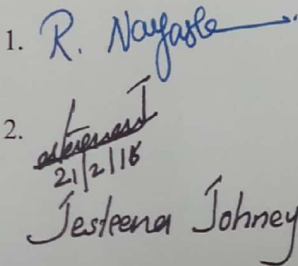 1. R. Nayak
2.
21/2/18
Jesteena Johney